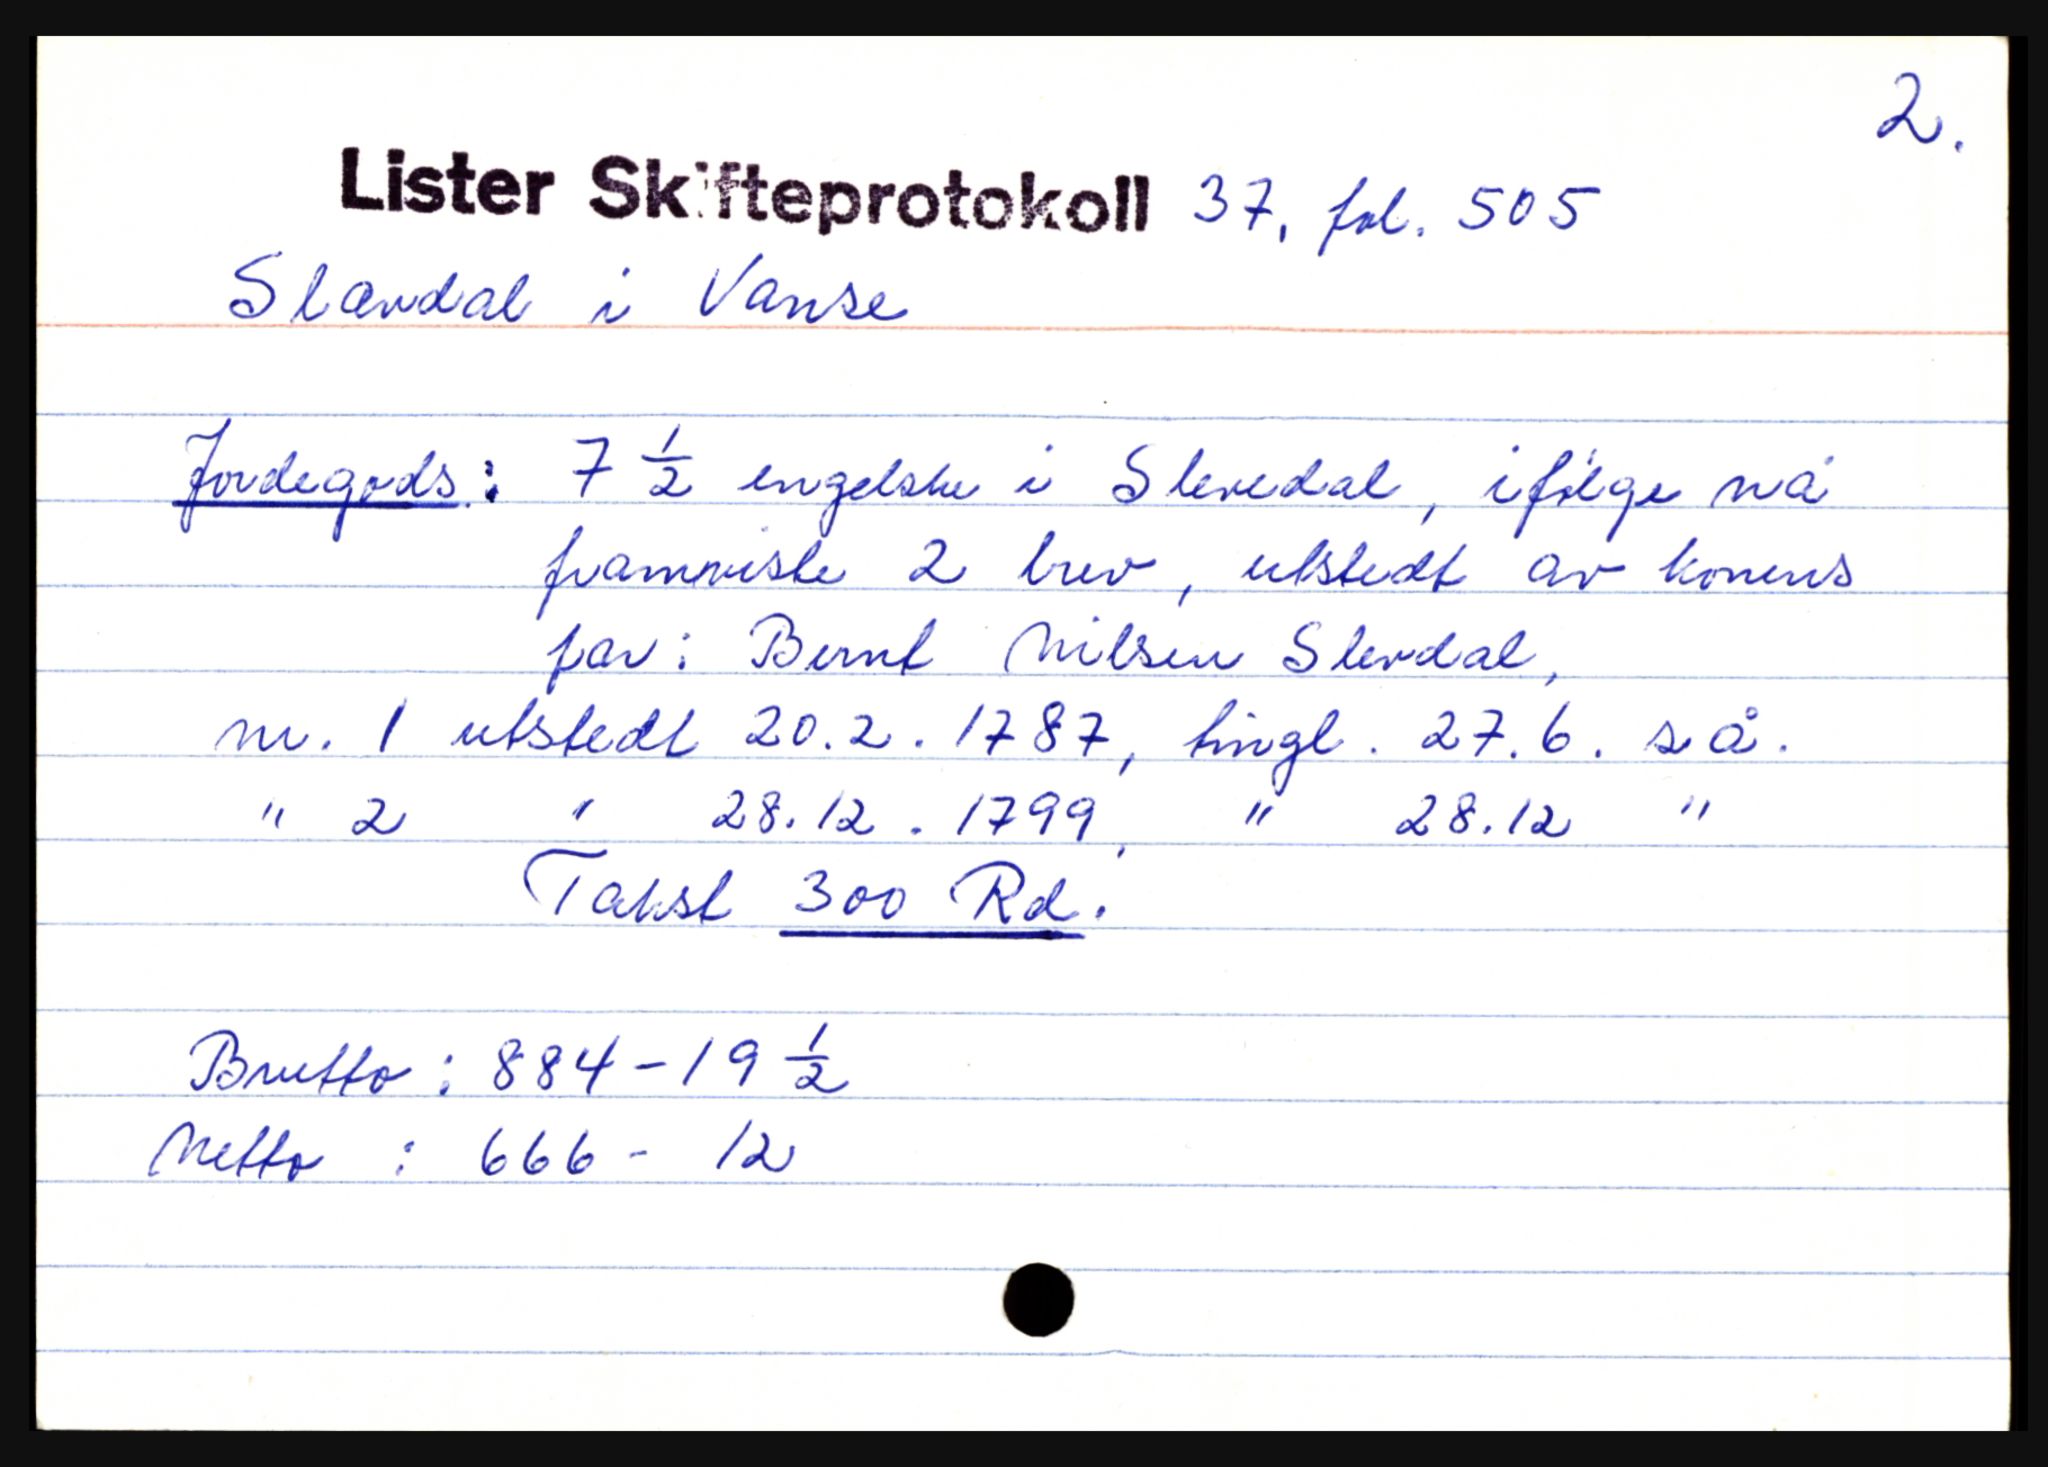 2.
Lister Skifteprotokoll 37, fol. 505
Slævdal i Vanse
Jordegods: 7 1/2 engelske i Slevedal, ifølge nå
framviste 2 brev, utstedt av konens
far: Bernt Nilsen Slevdal,
nr. 1 utstedt 20.2.1787, tingl. 27.6. s å.
" 2 " 28.12.1799, " 28.12 "
Takst 300 Rd.
Brutto: 884-19 1/2
Netto : 666- 12